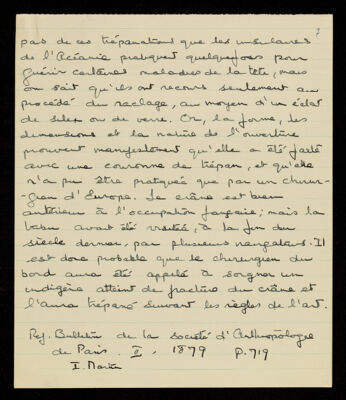 7
pas de ces trépanations que les insulaires
de l'Océanie pratiquent quelquefois pour
guérir certaines maladies de la tête, mais
on sait qu'ils ont recours seulement au
procédé du raclage, au moyen d'un éclat
de silex ou de verre. Or, la forme, les
dimensions et la nature de l'ouverture
prouvent manifestement qu'elle a été faite
avec une couronne de trépan, et qu'elle
n'a pu être pratiquée que par un chirur-
gien d'Europe. Le crâne est bien
antérieur à l'occupation française; mais la
avait été visitée, à la fin du
siècle dernier, par plusieurs navigateurs. Il
est donc probable que le chirurgien du
bord aura été appelé à soigner un
indigène atteint de fracture du crâne et
l'aura trépané suivant les règles de l'art.
Ref. Bulletin de la société d'Anthropologie
de Paris. II, 1879 p. 719
I. Marie